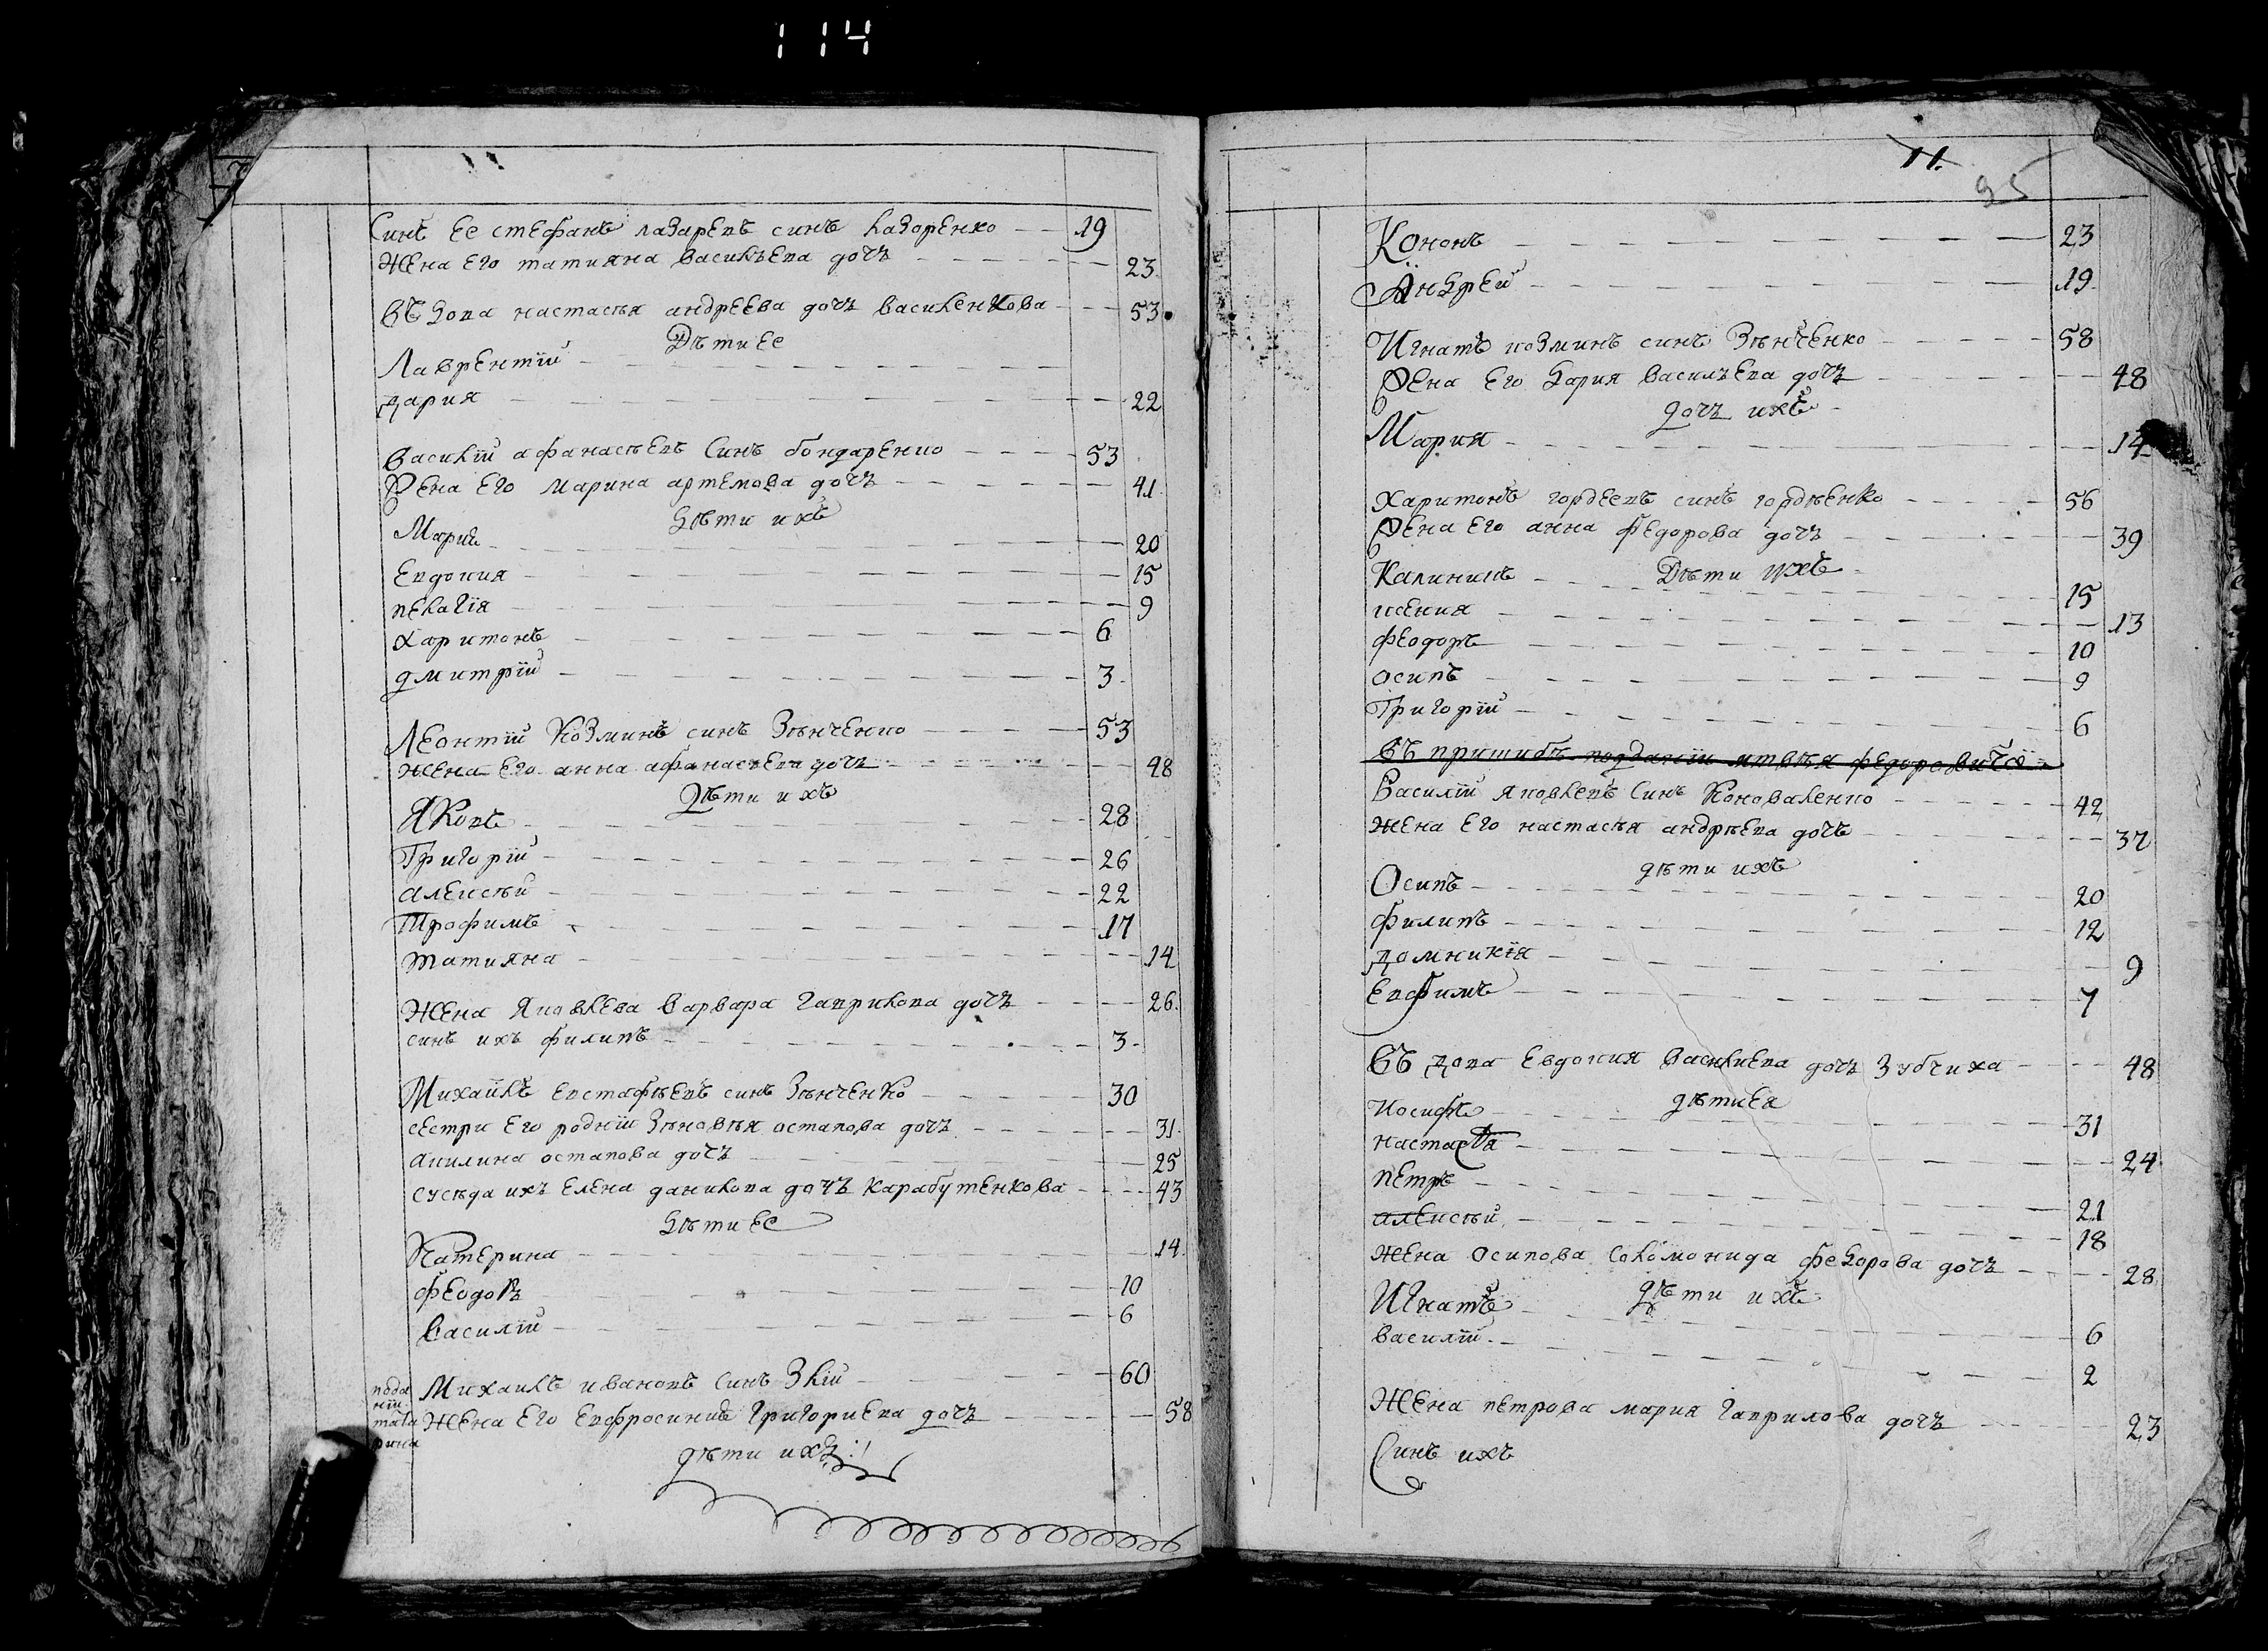 114
Синъ ее стефанъ лазаревъ синъ лазоренко 19
Жена его татияна василъева дочъ 23
Въдова настасъя андреева дочъ василенкова 53
Дѣти ее
Лаврентїй
дария 22
Василїй афанасъевъ синъ бондаренко 53
Жена его марина артемова дочъ 41
дѣти ихъ
Мария 20
Евдокия 15
пелагїя 9
харитонъ 6
дмитрїй 3
Леонтїй козминъ синъ Зѣнченко 53
жена его анна афанасъева дочъ 48
дѣти ихъ
Яковъ 28
Григорїй 26
алексѣй 22
Трофимъ 17
татияна 14
жена яковлева варвара гаврилова дочъ 26
синъ ихъ филипъ 3
Михайлъ евстафѣевъ синъ Зѣнченко 30
сестри его роднїи Зѣновѣя остапова дочъ 31
акилина остапова дочъ 25
сусѣда ихъ елена данилова дочъ карабутенкова 43
дѣти ее
Катерина 14
феодоръ 10
василїй 6
Михаилъ ивановъ синъ Злїй 60
Жена его евфросиния григориева дочъ 58
дѣти ихъ
11.
95
Кононъ 23
Андрей 19
Игнатъ козминъ синъ Зѣнченко 58
Жена его дария василъева дочъ 48
дочъ ихъ
Мария 14
Харитонъ гордеевъ синъ гордѣенко 56
Жена его анна федорова дочъ 39
Дѣти ихъ
Калиникъ 15
ксения 13
феодоръ 10
осипъ 9
Григорїй 6
Въ пришибѣ подданїи мтвѣя федоровича
Василїй яковлевъ синъ коноваленко 42
жена его настасѣя андрѣева дочъ 37
дѣти ихъ
Осипъ 20
филипъ 12
домникїя 9
Евфимъ 7
Въдова евдокия василиева дочъ Зубчиха 48
дѣти ея
Иосифъ 31
настасѣя 24
петръ 21
алексѣй 18
жена осипова соломонида федорова дочъ 28
дѣти ихъ
Игнатъ 6
василїй 2
жена петрова мария гаврилова дочъ 23
Синъ ихъ